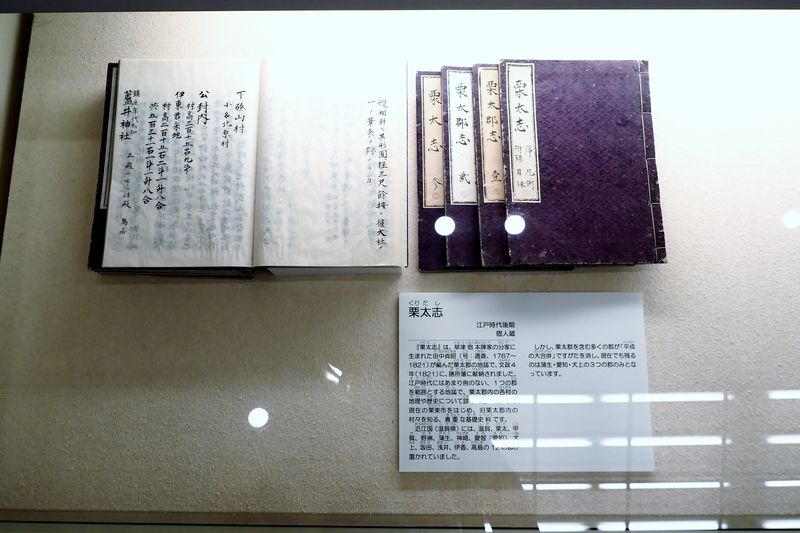 下砥山村
小名北原村
公封内
村高三百十五石九斗
伊東君采地
村高二百十五石二斗一升八合
共五百三十一石一斗一升八合
蘆井神社
栗太志 序 凡例 附録 目録
栗太郡志 壹
栗太郡志 貳
栗太志 参
くりたし
栗太志
江戸時代後期
個人蔵
『栗太志』は、草津宿本陣家の分家に
生まれた田中貞昭(号:適斎、1767〜
1821)が編んだ栗太郡の地誌で、文政4
年(1821)に、膳所藩に献納されました。
江戸時代にはあまり例のない、1つの郡
を範囲とする地誌で、栗太郡内の各村の
地理や歴史について詳
現在の栗東市をはじめ、旧栗太郡内の
村々を知る、貴重な基礎史料です。
近江国(滋賀県)には、滋賀、栗太、甲
賀、野洲、蒲生、神崎、愛智(愛知)、犬
上、坂田、浅井、伊香、高島の12の郡が
置かれていました。
しかし、栗太郡を含む多くの郡が「平成
の大合併」ですがたを消し、現在でも残る
のは蒲生・愛知・犬上の3つの郡のみとな
っています。